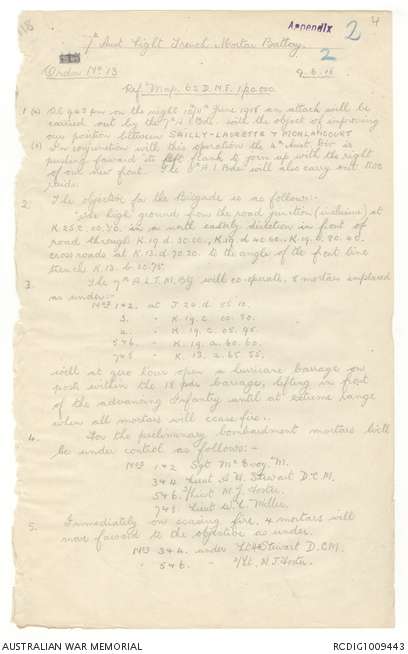 118
Appendix 2
4
7th Aust Light Trench Mortar Battery.
2
Order No 13
9.6.18
Ref Map. 62 D.N.E. 1/20000
1 (a) At 9.45 pm on the night 10th/11th June 1918 an attack will be
carried out by the 7th A.I.Bde. with the object of improving
our position between SAILLY-LAURETTE & MORLANCOURT
(b) In conjunction with this operation the 4th Aust Div is
pushing forward its left flank to form up with the right
of our new front. The A.I.Bde will also carry out two
raids.
2. The objective for the Brigade is as follows:-
The high ground from the road junction (inclusive) at
K.25.c.20.40. in a north easterly direction in front of
road through K.19.d.30.00., K.19.d.40.60., K.19.b.80.40.
cross roads at K.13.d.70.20. to the angle of the front line
trench K.13.b.20.75.
3. The 7th A.L.T.M.By will co-operate, 8 mortars emplaced
as under:-
Nos 1 & 2. at J.20.d.55.15.
3. " K.19.c.00.30.
4. " K.19.c.05.95.
5 & 6. " K.19.a.60.60.
7 & 8 " K.13.a.65.55.
will at zero hour open a hurricane barrage on
posts within the 18 pdr barrage, lifting in front
of the advancing Infantry until at extreme range
when all mortars will cease fire.
4. For the preliminary bombardment mortars will
be under control as follows:-
Nos 1 & 2 Sgt McEvoy. M.
3 & 4. Lieut S.H. Stewart D.C.M.
5 & 6. 2/Lieut N.J. Foster.
7 & 8. Lieut W.L. Miller.
5. Immediately on ceasing fire, 4 mortars will
move forward to the objective as under.
Nos 3 & 4. under Lt Stewart D.C.M.
" 5 & 6. " 2/Lt. N.J. Foster.
AUSTRALIAN WAR MEMORIAL
RCDIG1009443